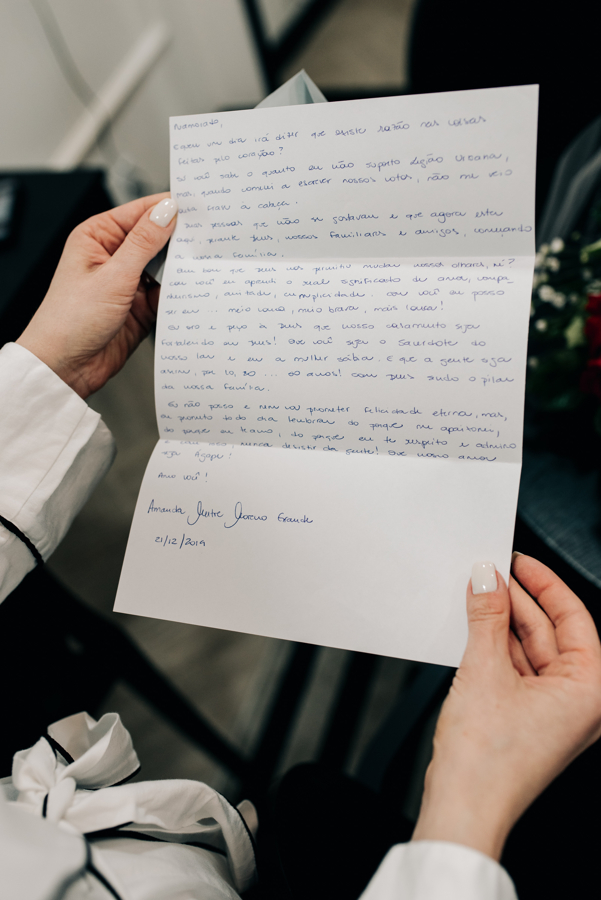 Namorado,
Quem um dia irá dizer que existe razão nas coisas
feitas pelo coração?
Só você sabe o quanto eu não suporto Legião Urbana,
mas, quando comecei a escrever nossos votos, não me veio
outra frase a cabeça.
Duas pessoas que não se gostavam e que agora estão
aqui, perante Deus, nossos familiares e amigos, começando
a nossa família.
Ainda bem que Deus nos permitiu mudar nossos olhares, né?
Com você eu aprendi o real significado de amor, compa-
nheirismo, amizade, cumplicidade. Com você eu posso
ser eu ... meio louca, meio brava, mais louca!
Eu oro e peço à Deus que nosso casamento seja
fortalecido em Deus! Que você seja o sacerdote do
nosso lar e eu a mulher sábia. E que a gente seja
assim, por 10, 20 ... 60 anos! Com Deus sendo o pilar
da nossa família.
Eu não posso e nem vou prometer felicidade eterna, mas,
eu prometo todo dia lembrar do porque me apaixonei,
do porque eu te amo, do porque eu te respeito e admiro
e nunca desistir da gente! Que nosso amor
seja Ágape!
Amo você!
Amanda Moreno
21/12/2019